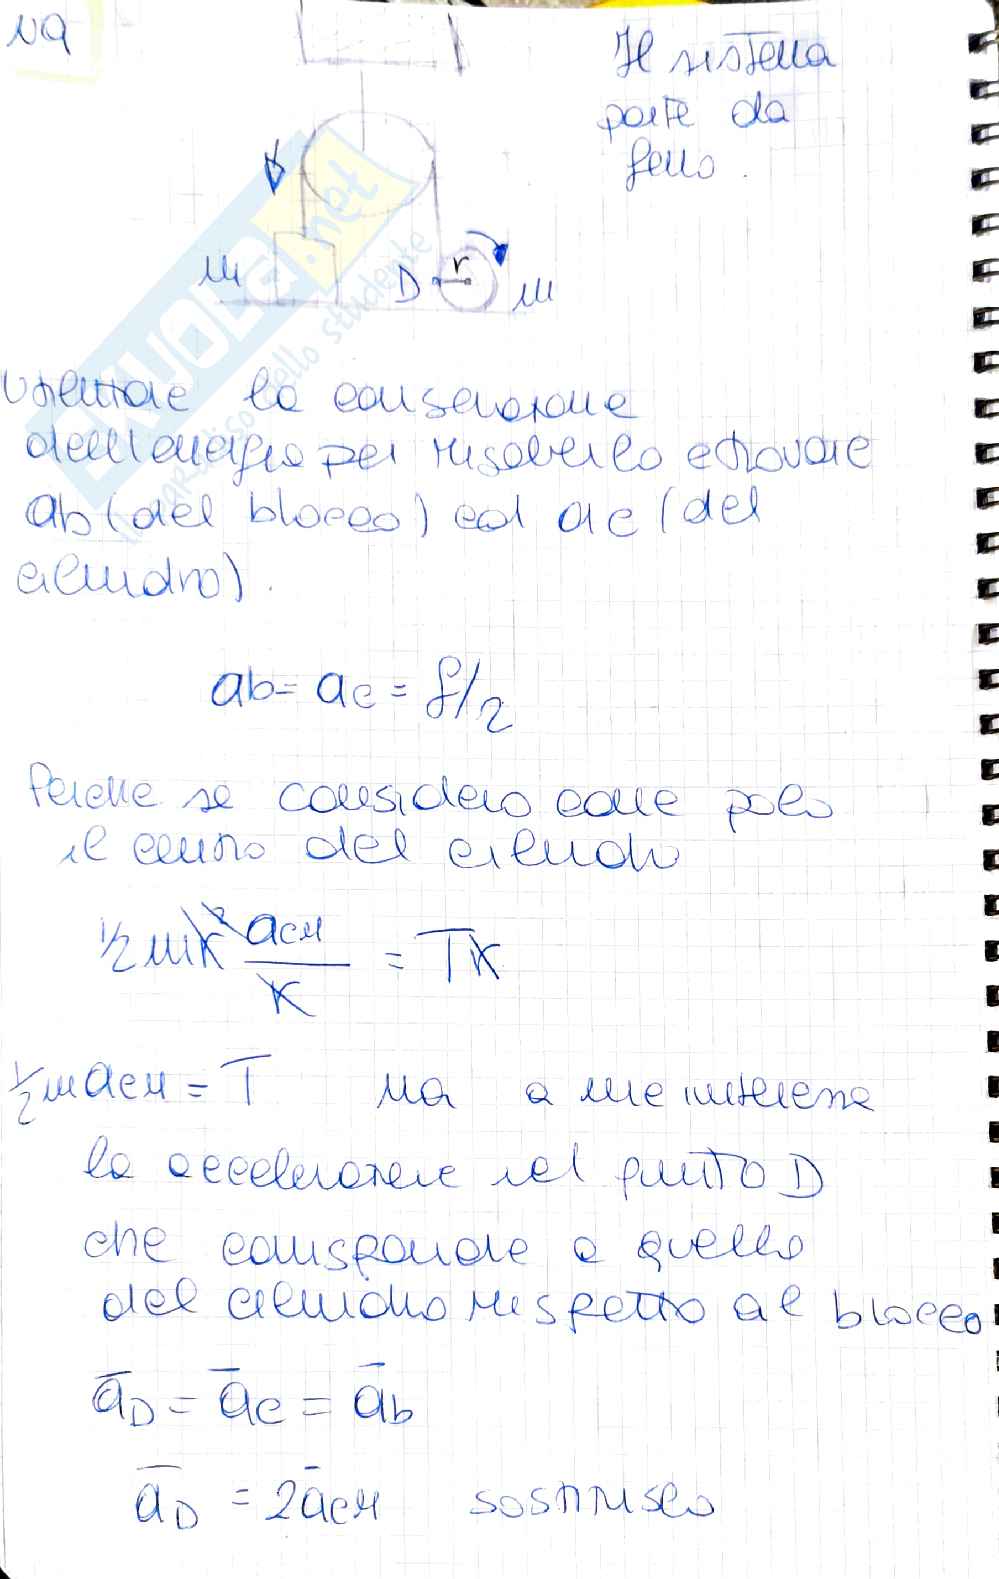 N9
Il sistema
parte da
fermo.
m D r m
SKUOLA.net
il paradiso dello studente
Utilizzare la conservazione
dell'energia per risolverlo e trovare
ab (del blocco) ed ac (del
cilindro).
ab = ac = g/2
Perche se considero come polo
il centro del cilindro
1/2 mR² aCM/R = TR
1/2 m aCM = T ma a me interessa
la accelerazione nel punto D
che corrisponde a quella
del cilindro rispetto al blocco
aD = ac = ab
aD = 2aCM sostituisco